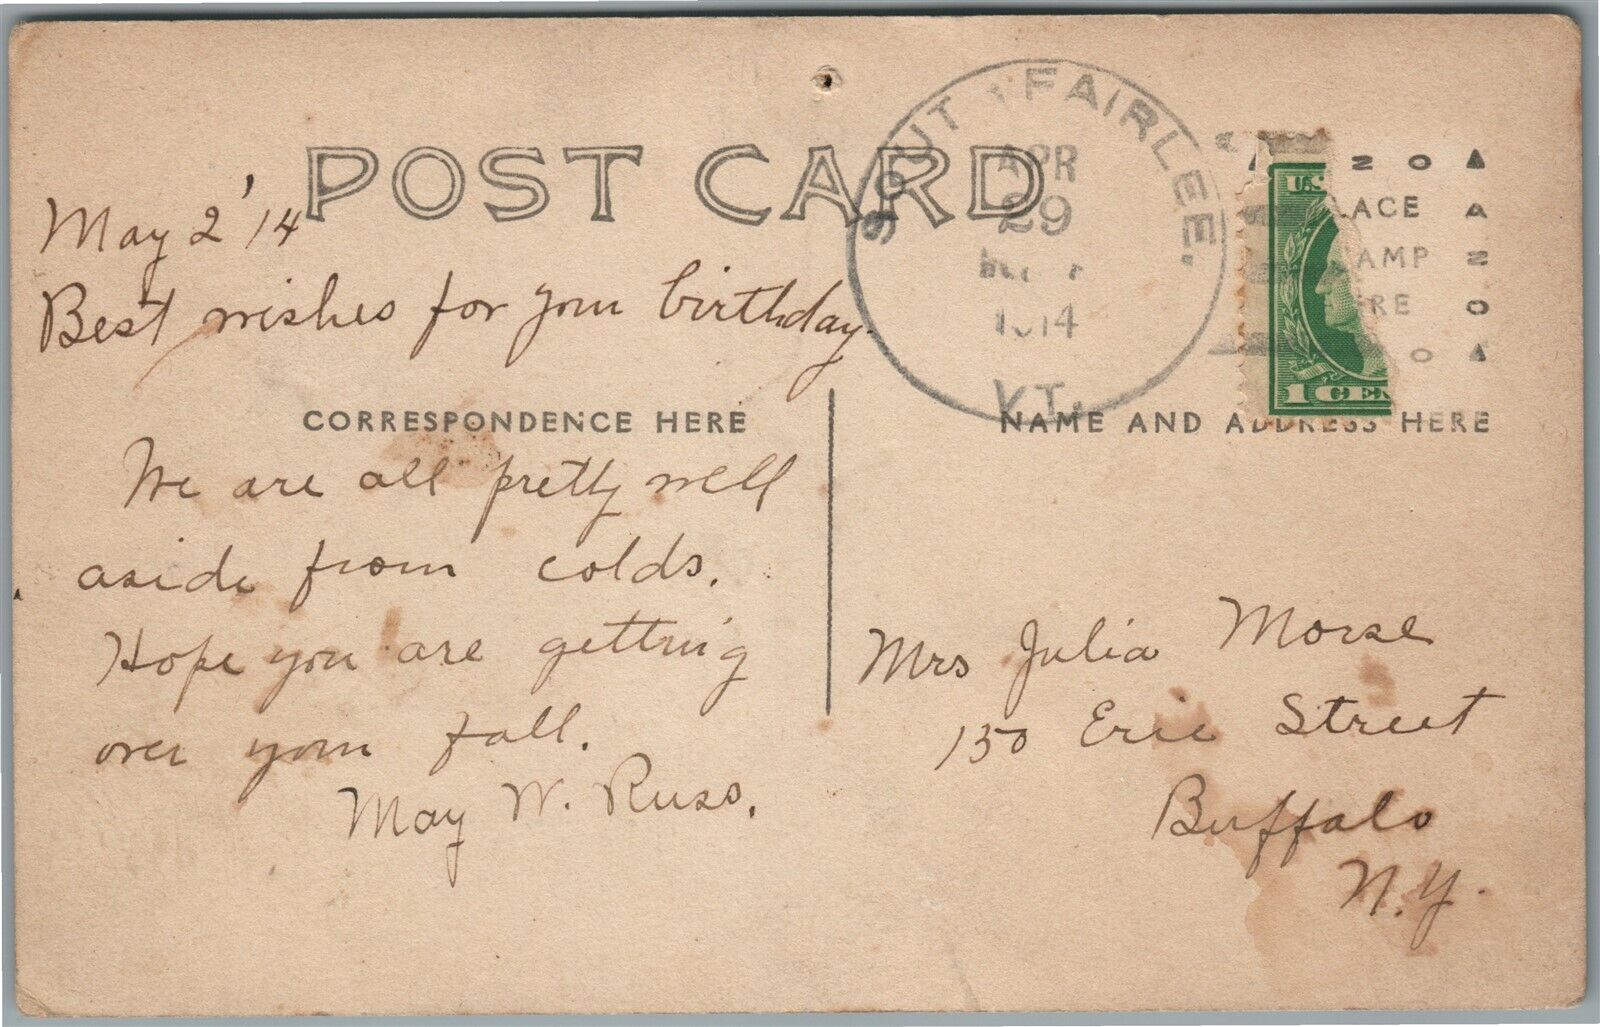 POST CARD
SOUTH FAIRLEE.
APR
29
1914
VT.
May 2 '14
Best wishes for your birthday.
CORRESPONDENCE HERE
We are all pretty well
aside from colds.
Hope you are getting
over your fall.
May W. Russ.
U.S.
1 CEN
AZO
LACE
AMP
RE
NAME AND ADDRESS HERE
Mrs Julia Morse
150 Erie Street
Buffalo
N.Y.